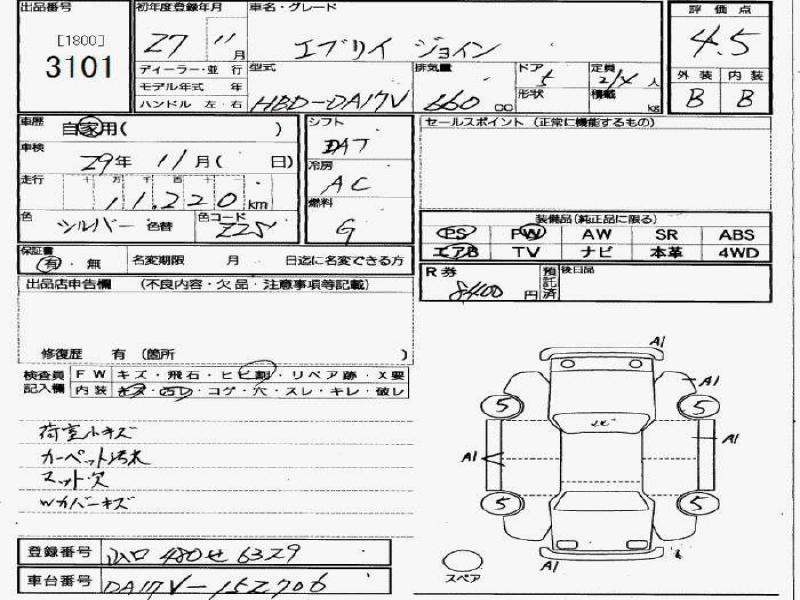 出品番号 初年度登録年月 車名・グレード 評価点
[1800] 27 11月 エブリイ ジョイン 4.5
3101
ディーラー・並行 型式 排気量 ドア 5 定員 2/4人 外装 内装
モデル年式 年 形状 積載 kg
ハンドル 左・右 HBD-DA17V 660cc B B
車歴 自家用( ) シフト セールスポイント (正常に機能するもの)
車検 29年 11月( 日) DAT
走行 冷房
十 万 千 百 十 一
11,220km AC
色 シルバー 色替 色コード Z2S 燃料 G
装備品(純正品に限る)
PS PW AW SR ABS
エアB TV ナビ 本革 4WD
保証書
有・無 名変期限 月 日迄に名変できる方
R券 8400円 預託済 後日品
出品店申告欄 (不良内容・欠品・注意事項等記載)
修復歴 有 (箇所 )
検査員記入欄 FW キズ・飛石・ヒビ割・リペア跡・X要
内装 キズ・汚レ・コゲ・穴・スレ・キレ・破レ
荷室小キズ
カーペット汚未
マット欠
Wカバーキズ
A1
A1
5 5
A1 A1
5 5
A1
スペア
登録番号 山口 480せ 6329
車台番号 DA17V-152706